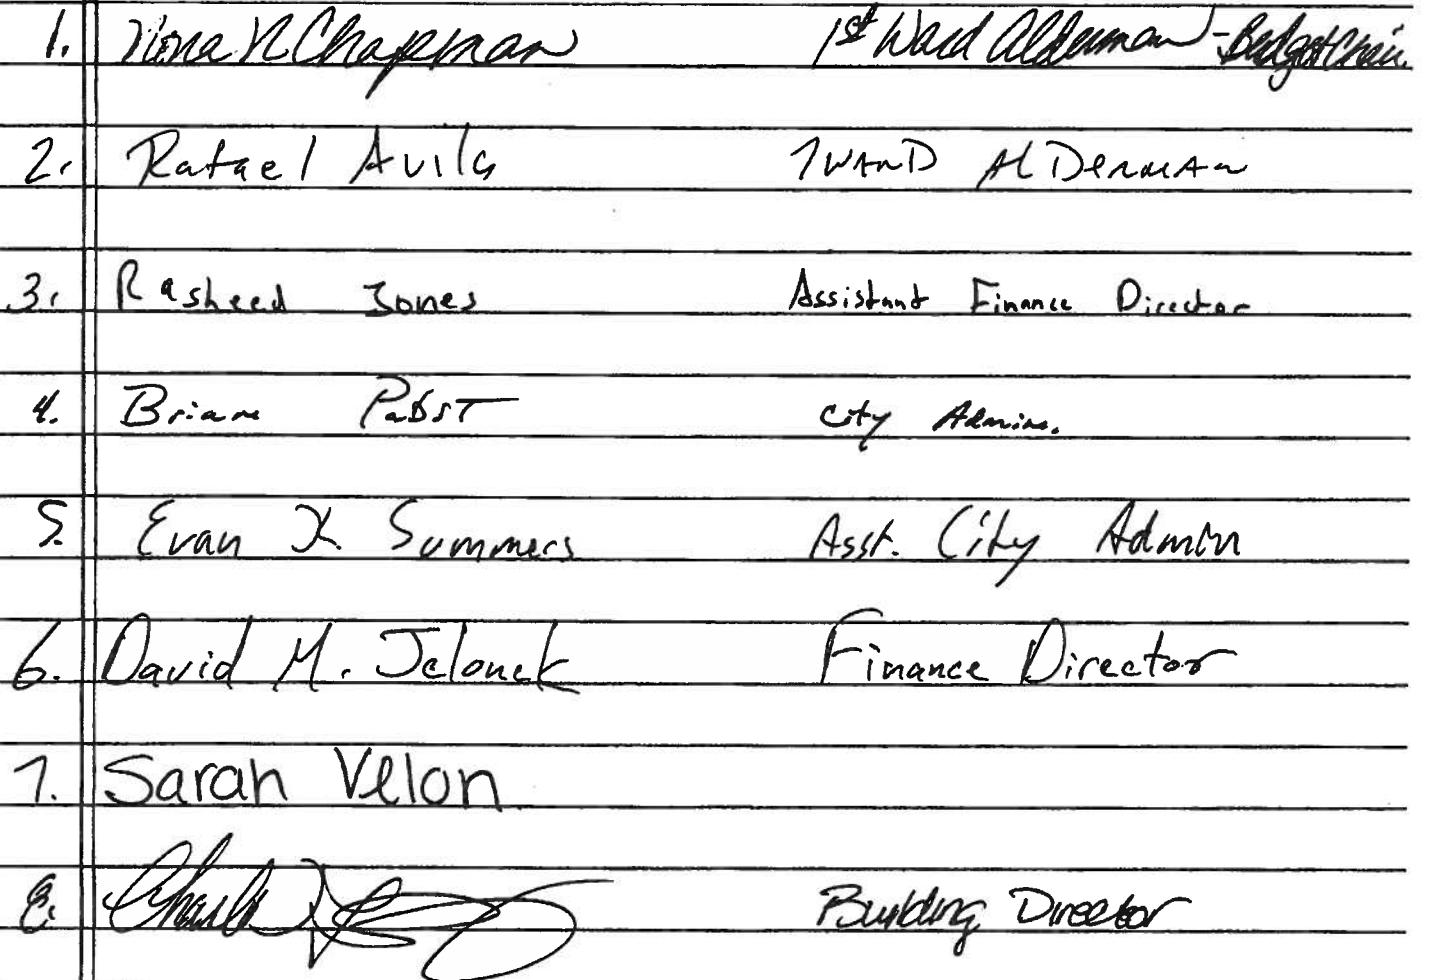 1. Nona N Chapman 1st Ward Alderman - Budget Chair.
2. Rafael Avila 7 WARD AlDerman
3. Rasheed Jones Assistant Finance Director
4. Brian Pabst City Admin.
5. Evan K. Summers Asst. City Admin
6. David M. Jelonek Finance Director
7. Sarah Velon
8. Charle Building Director